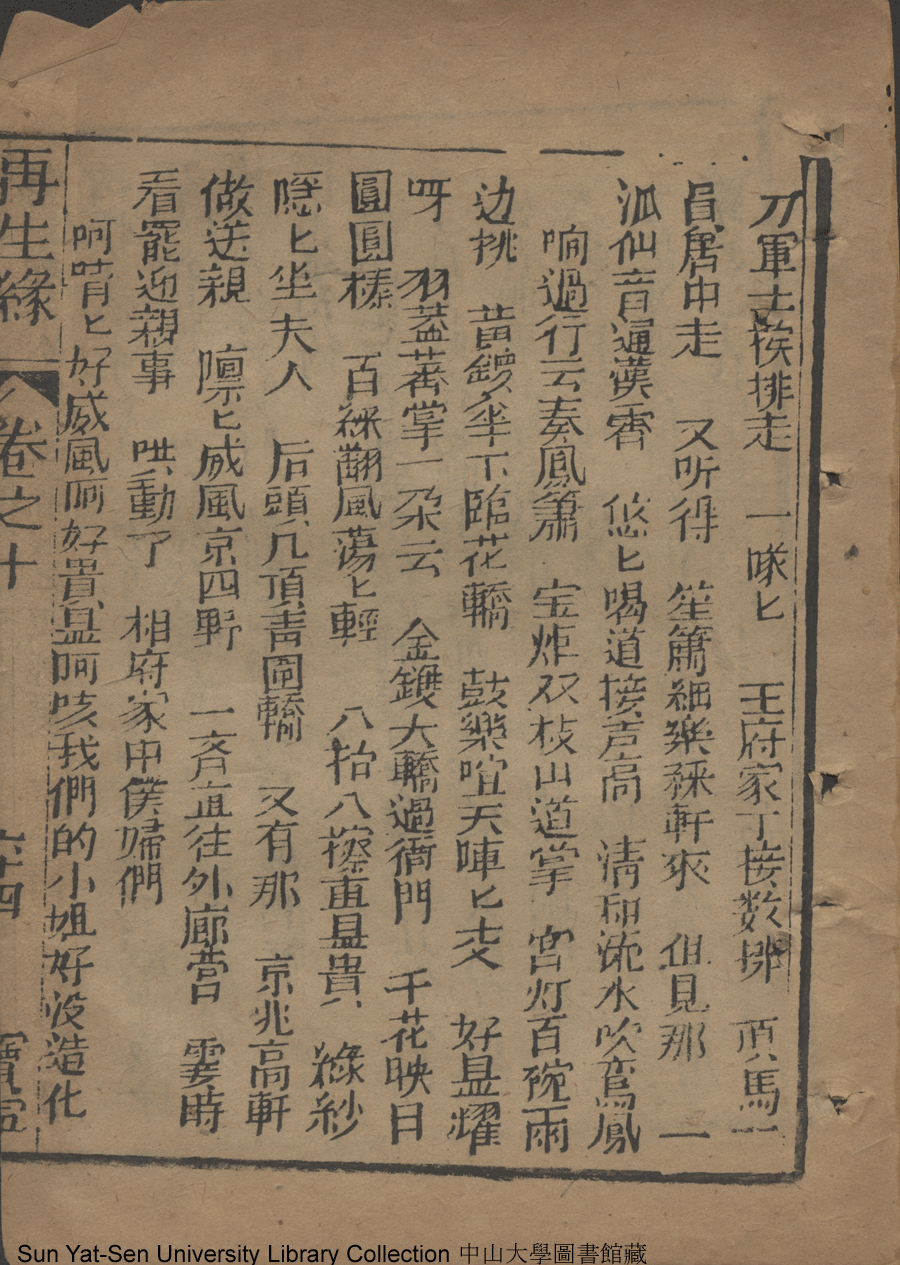 刀軍士挨排走 一隊匕 王府家丁接数排 頂馬一
員居中走 又听得 笙簫細樂䌽軒來 但見那 一
派仙音通漢霄 悠匕喝道接声高 清和流水吹鸞鳳
响過行云奏鳳簫 宝炬双枝山道掌 宮灯百碗兩
边挑 黄鑀伞下臨花轎 鼓樂喧天陣匕交 好显耀
呀 羽蓋蕃掌一朶云 金鑁大轎過衙門 千花映日
圓圓檺 百綵翻風蕩匕輕 八抬八擡重显貴 綠紗
隱匕坐夫人 后頭几頂青圍轎 又有那 京兆高軒
做送親 凛匕威風京四野 一斉直往外廊营 霎時
看罷迎親事 哄動了 相府家中僕婦們
呵唷匕好威風呵好貴显呵咳我們的小姐好没造化
再生緣 卷之十 六十四
Sun Yat-Sen University Library Collection 中山大學圖書館藏